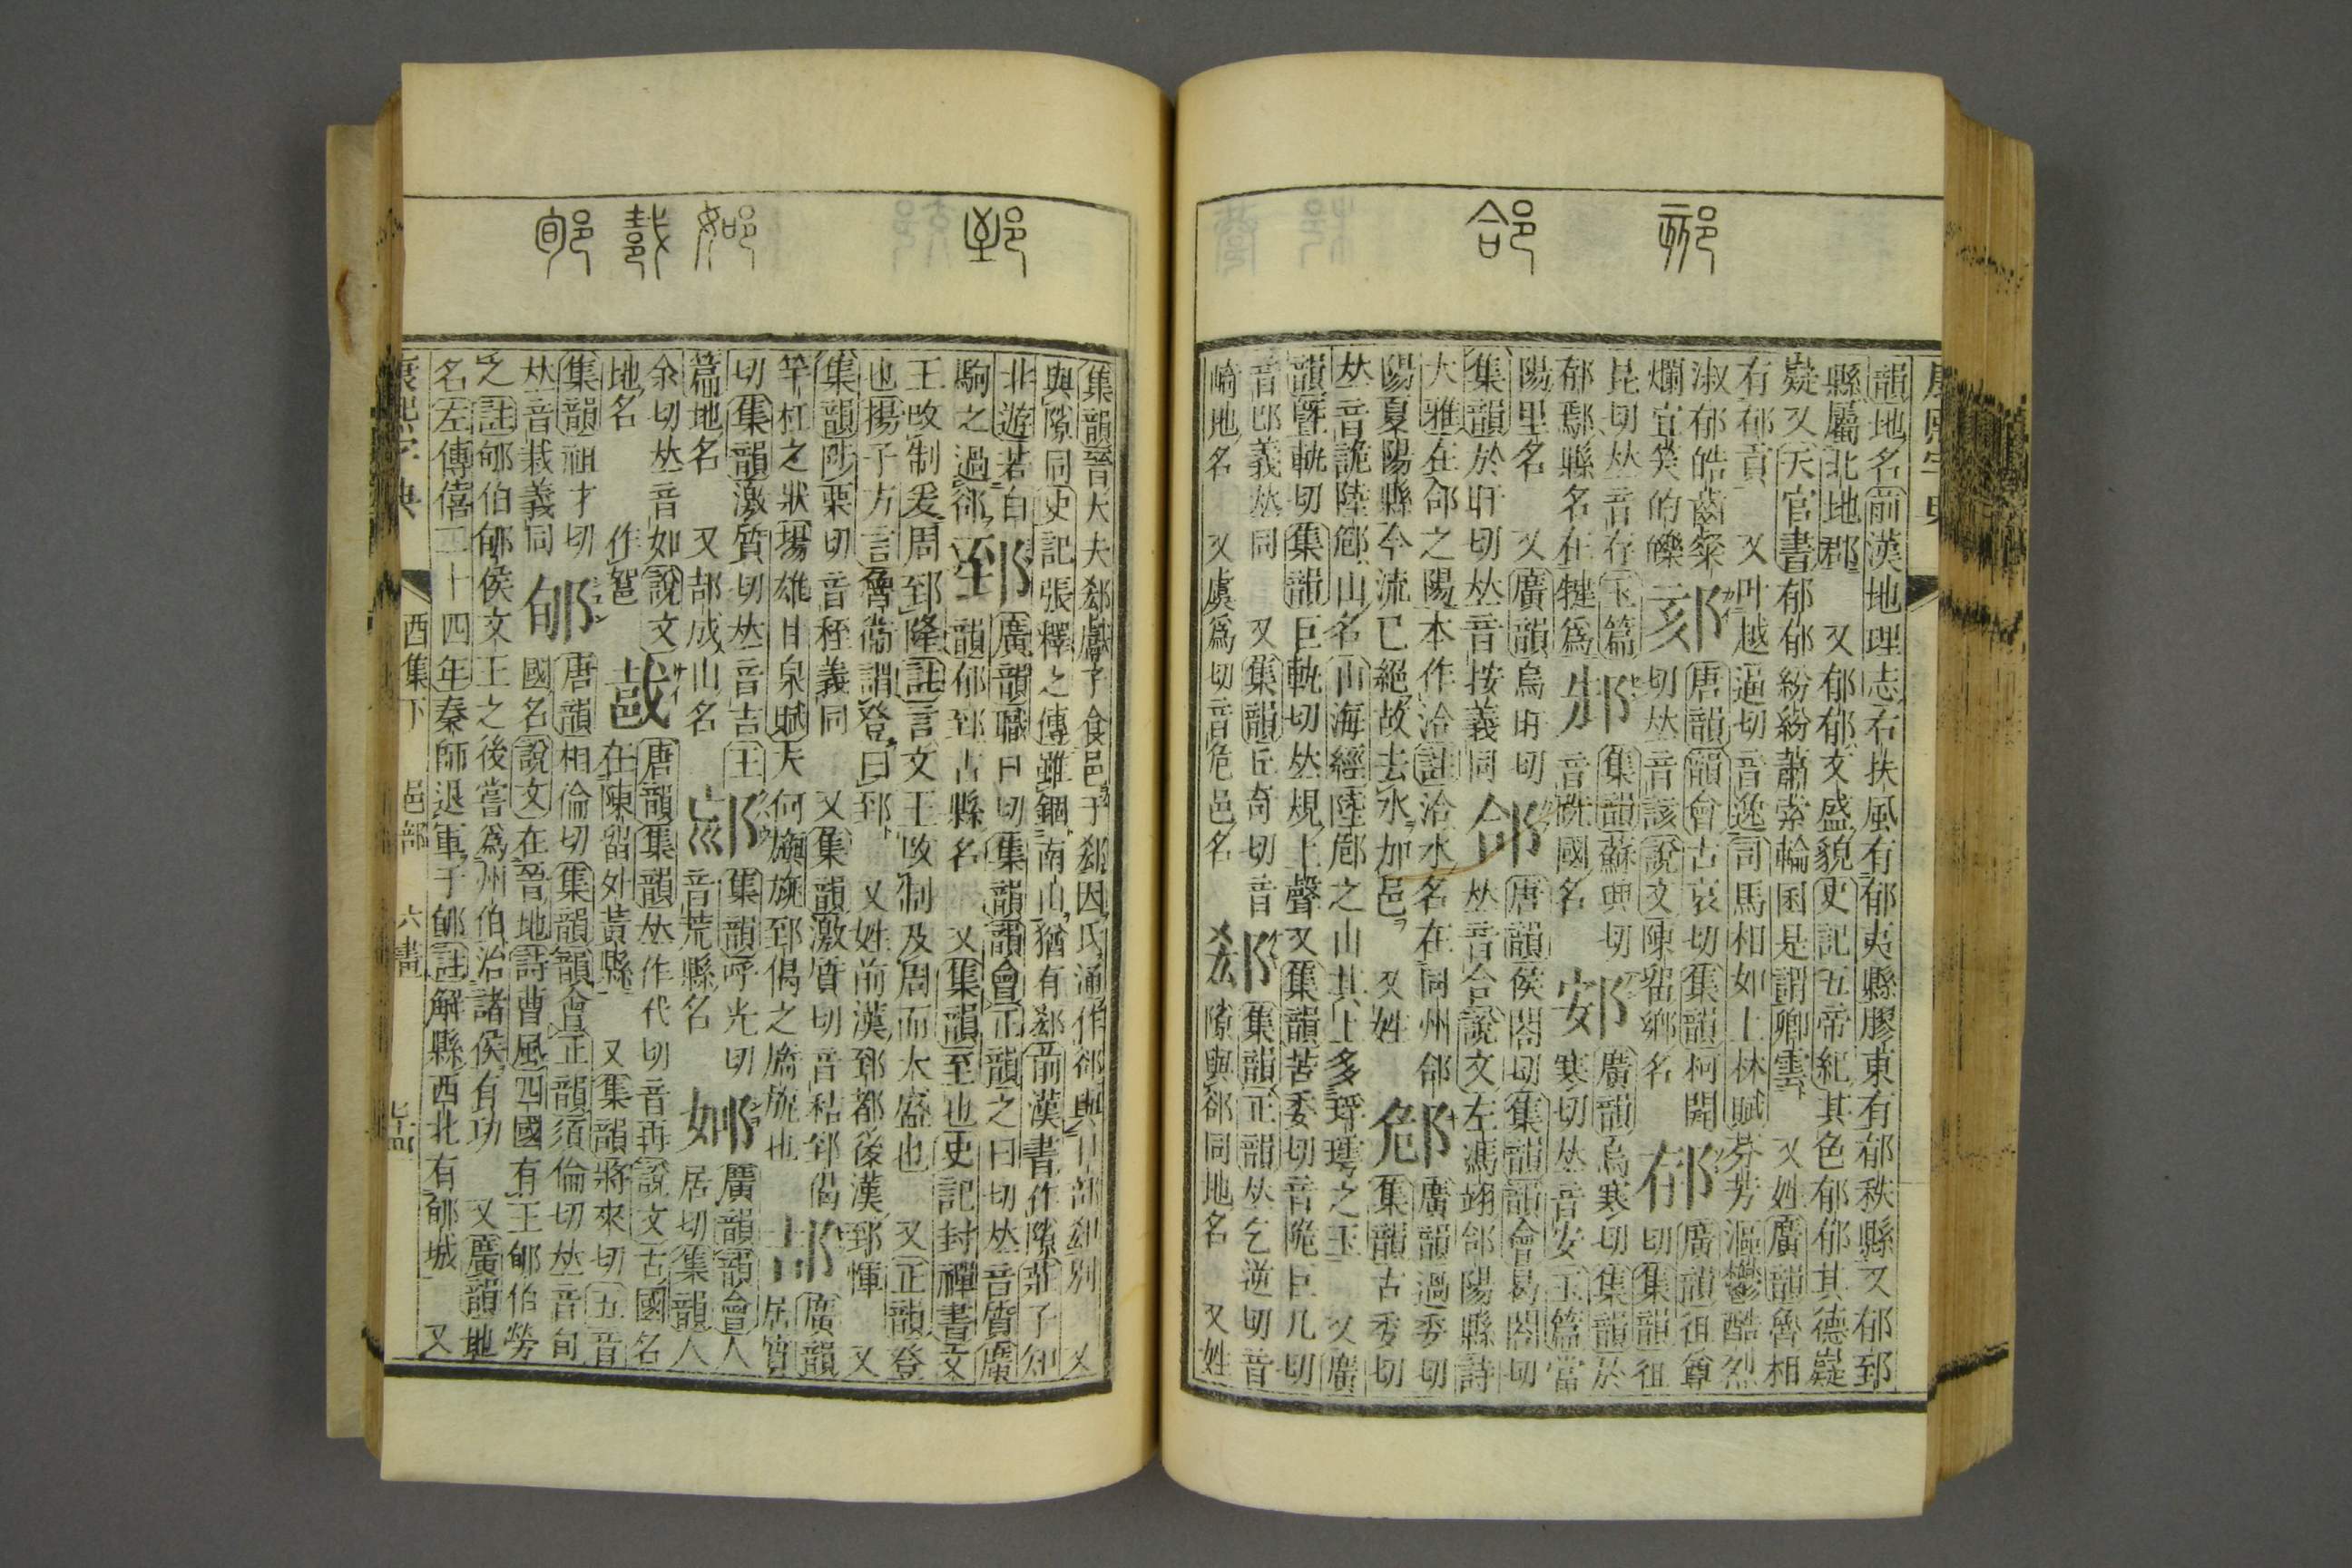 郂 郃
康熙字典
韻地名前漢地理志右扶風有郁夷縣膠東有郁秩縣又郁郅
縣屬北地郡 又郁郁文盛貌史記五帝紀其色郁郁其德嶷
嶷又天官書郁郁紛紛蕭索輪囷是謂卿雲 又姓廣韻魯相
有郁貢 又叶越逼切音逸司馬相如上林賦芬芳漚鬱酷烈
淑郁皓齒粲
爛宜笑的皪
郂
唐韻韻會古哀切集韻柯開
切𠀤音該說文陳留鄉名
廣韻徂尊
切集韻徂
昆切𠀤音存玉篇
郁鄢縣名在犍爲
集韻蘇典切
音銑國名
廣韻烏寒切集韻於
寒切𠀤音安玉篇當
陽里名 又廣韻烏旰切
集韻於旰切𠀤音按義同
郃
唐韻侯閤切集韻韻會曷閤切
𠀤音合說文左馮翊郃陽縣詩
大雅在郃之陽本作洽註洽水名在同州郃
陽夏陽縣今流已絕故去水加邑 又姓
廣韻過委切
集韻古委切
𠀤音詭陸山名山海經陸之山其上多㻬琈之玉 又廣
韻曁軌切集韻巨軌切𠀤規上聲又集韻苦委切音跪巨几切
音義𠀤同 又集韻丘奇切音
崎地名 又虞爲切音危邑名
郄
集韻正韻𠀤乞逆切音
隙與郤同地名 又姓
郅 䢴 𢧀 郇
集韻晉大夫郄獻子食邑于郄因氏通作郤與卩部卻別 又
與隙同史記張釋之傳雖錮南山猶有郄前漢書作隙莊子知
北遊若白
駒之過郤
郅
廣韻職日切集韻韻會正韻之日切𠀤音質廣
韻郁郅古縣名 又集韻至也史記封禪書文
王改制爰周郅隆註言文王改制及周而大盛也 又正韻登
也揚子方言魯衞謂登曰郅 又姓前漢郅都後漢郅惲 又
集韻陟栗切音秷義同 又集韻激質切音秸郅偈
竿杠之狀揚雄甘泉賦夫何旟旐郅偈之旖旎也
廣韻
居質
切集韻激質切𠀤音吉玉
篇地名 又部成山名
集韻呼光切
音荒縣名
䢴
廣韻韻會人
居切集韻人
余切𠀤音如說文
地名 作
唐韻集韻𠀤作代切音再說文古國名
在陳留外黃縣 又集韻將來切五音
集韻祖才切
𠀤音栽義同
郇
唐韻相倫切集韻韻會正韻須倫切𠀤音旬
國名說文在晉地詩曹風四國有王郇伯勞
之註郇伯郇侯文王之後嘗爲州伯治諸侯有功 又廣韻地
名左傳僖二十四年秦師退軍于郇註解縣西北有郇城 又
康熙字典 酉集下 邑部 六畫